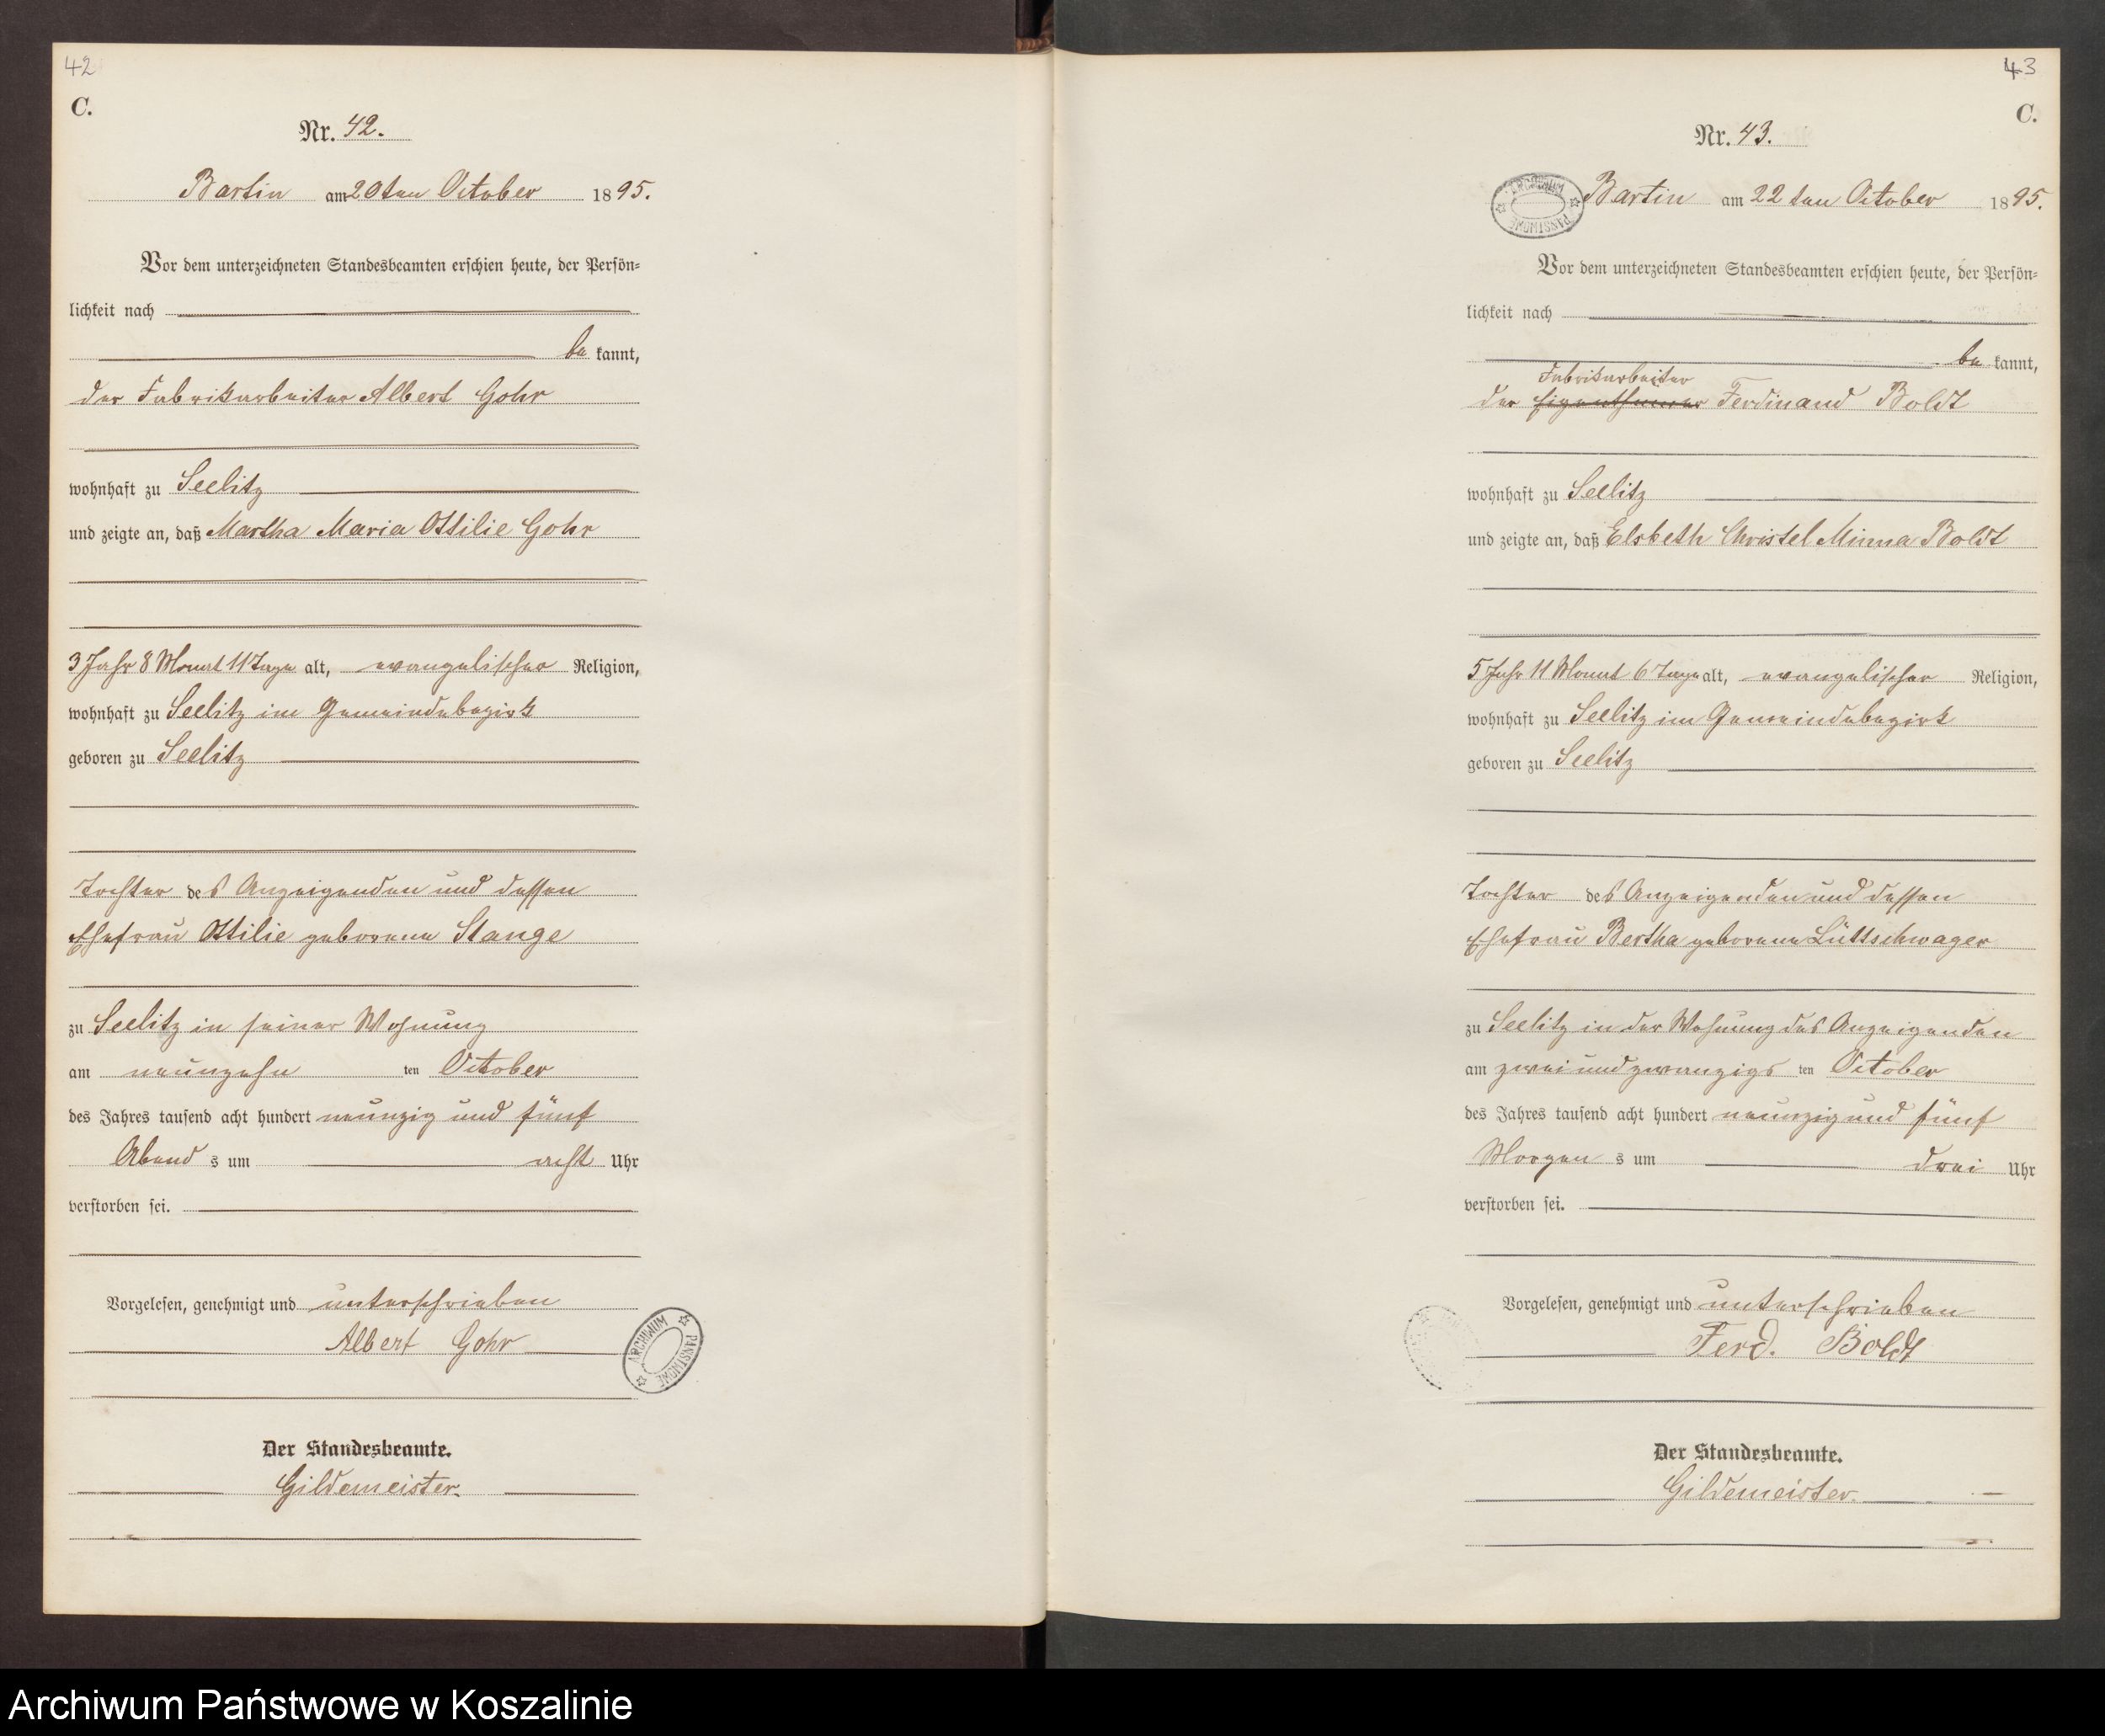 42
C.
Nr. 42.
Bartin am 20ten October 1895.
Vor dem unterzeichneten Standesbeamten erschien heute, der Persön-
lichkeit nach
be kannt,
der Fabrikarbeiter Albert Gohr
wohnhaft zu Seelitz
und zeigte an, daß Martha Maria Ottilie Gohr
3 Jahr 8 Monat 11 Tage alt, evangelischer Religion,
wohnhaft zu Seelitz im Gemeindebezirk
geboren zu Seelitz
Tochter des Anzeigenden und dessen
Ehefrau Ottilie geborene Stange
zu Seelitz in seiner Wohnung
am neunzehn ten October
des Jahres tausend acht hundert neunzig und fünf
Abend s um acht Uhr
verstorben sei.
Vorgelesen, genehmigt und unterschrieben
Albert Gohr
ARCHIWUM PAŃSTWOWE
Der Standesbeamte.
Gildemeister.
43
C.
Nr. 43.
ARCHIWUM PAŃSTWOWE
Bartin am 22ten October 1895.
Vor dem unterzeichneten Standesbeamten erschien heute, der Persön-
lichkeit nach
be kannt,
Fabrikarbeiter
der Eigenthümer Ferdinand Boldt
wohnhaft zu Seelitz
und zeigte an, daß Elsbeth Christel Minna Boldt
5 Jahr 11 Monat 6 Tage alt, evangelischer Religion,
wohnhaft zu Seelitz im Gemeindebezirk
geboren zu Seelitz
Tochter des Anzeigenden und dessen
Ehefrau Bertha geborene Lüttschwager
zu Seelitz in der Wohnung des Anzeigenden
am zwei und zwanzigs ten October
des Jahres tausend acht hundert neunzig und fünf
Morgen s um drei Uhr
verstorben sei.
Vorgelesen, genehmigt und unterschrieben
Ferd. Boldt
Der Standesbeamte.
Gildemeister.
Archiwum Państwowe w Koszalinie